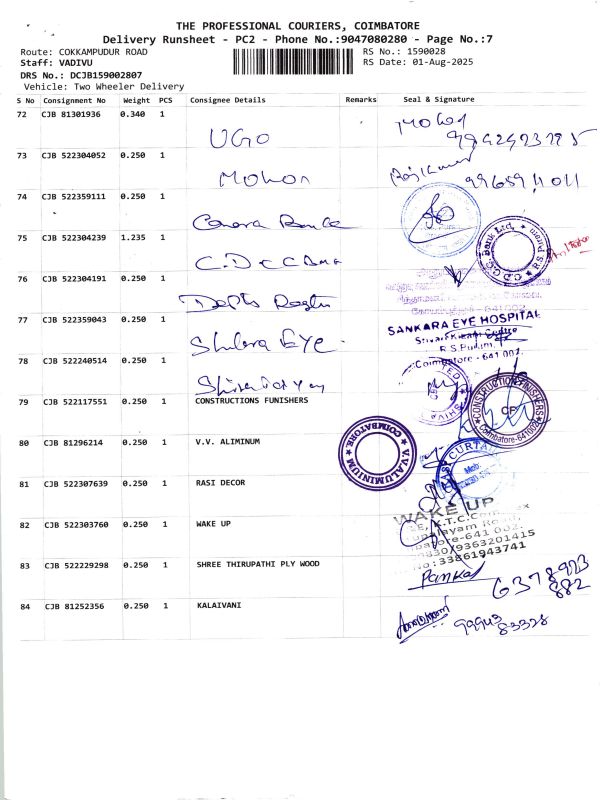 THE PROFESSIONAL COURIERS, COIMBATORE
Delivery Runsheet - PC2 - Phone No.:9047080280 - Page No.:7
Route: COKKAMPUDUR ROAD
RS No.: 1590028
Staff: VADIVU
RS Date: 01-Aug-2025
DRS No.: DCJB159002807
Vehicle: Two Wheeler Delivery
S No Consignment No Weight PCS Consignee Details Remarks Seal & Signature
72 CJB 81301936 0.340 1
UGO
73 CJB 522304052 0.250 1
Mohon
74 CJB 522359111 0.250 1
Canara Bank
75 CJB 522304239 1.235 1
C.D.C.C Bank
76 CJB 522304191 0.250 1
77 CJB 522359043 0.250 1
EYE
SANKARA EYE HOSPITAL
R S Puram,
Coimbatore - 641 002.
78 CJB 522240514 0.250 1
79 CJB 522117551 0.250 1 CONSTRUCTIONS FUNISHERS
CONSTRUCTION FINISHERS
CF
Coimbatore-641002
80 CJB 81296214 0.250 1 V.V. ALIMINUM
V.V.ALUMINIUM
COIMBATORE
81 CJB 522307639 0.250 1 RASI DECOR
82 CJB 522303760 0.250 1 WAKE UP
WAKE UP
83 CJB 522229298 0.250 1 SHREE THIRUPATHI PLY WOOD
Pankaj
6378923
882
84 CJB 81252356 0.250 1 KALAIVANI
99943
83328